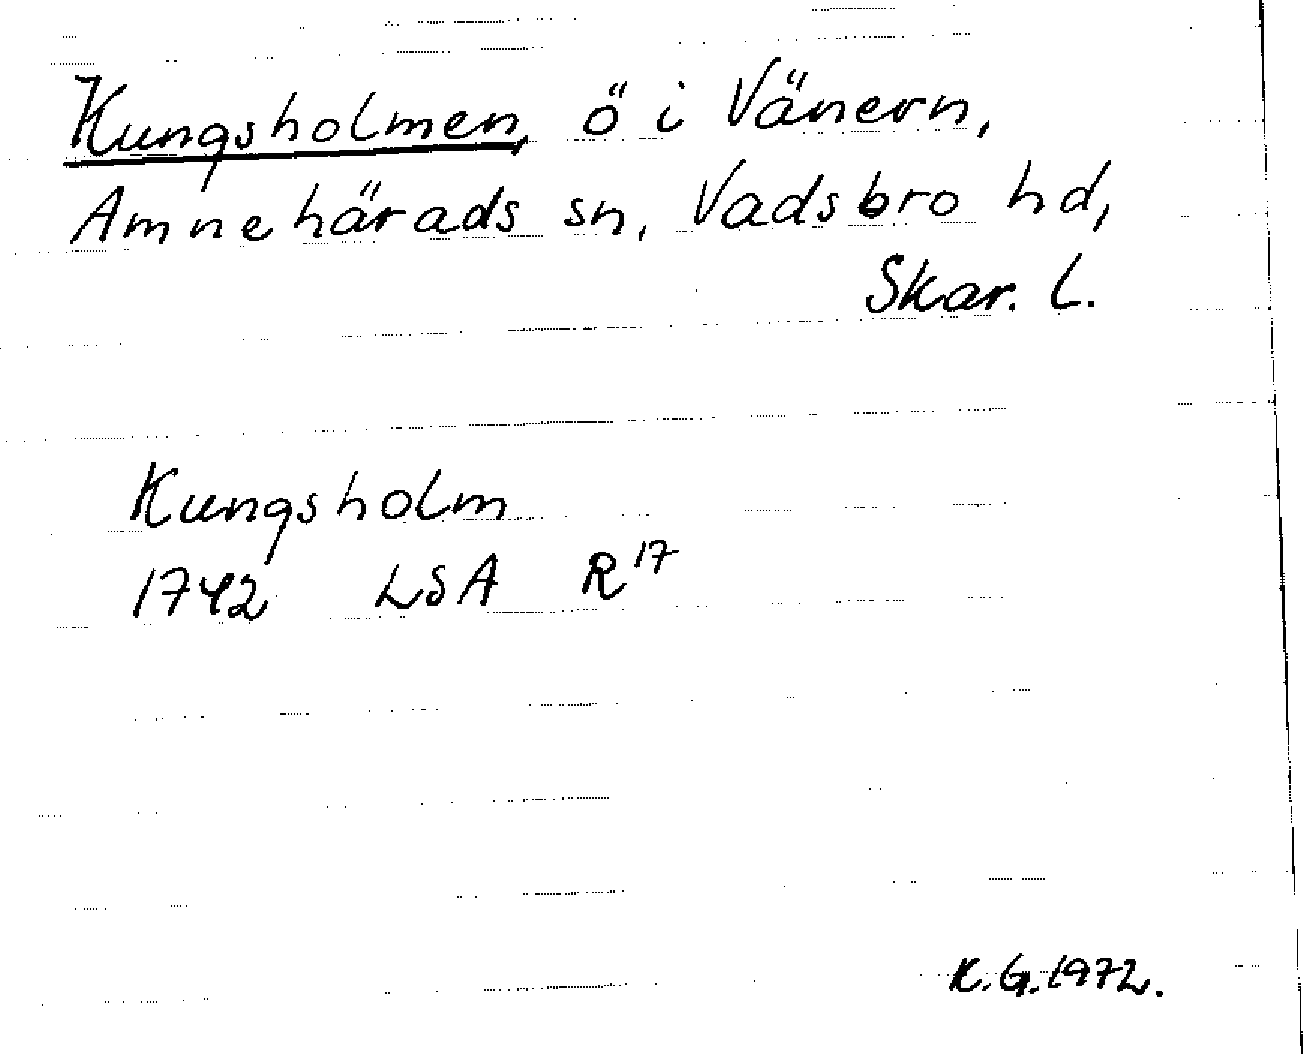 Kungsholmen, ö i Vänern,
Amnehärads sn, Vadsbro hd,
Skar. L.
Kungsholm
1742 LSA R17
K.G. 1972.